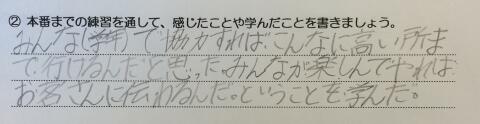 ② 本番までの練習を通して、感じたことや学んだことを書きましょう。
みんな(学年)で協力すれば、こんなに高い所ま
で行けるんだと思った。みんなが楽しんでやれば
お客さんに伝わるんだ。ということを学んだ。